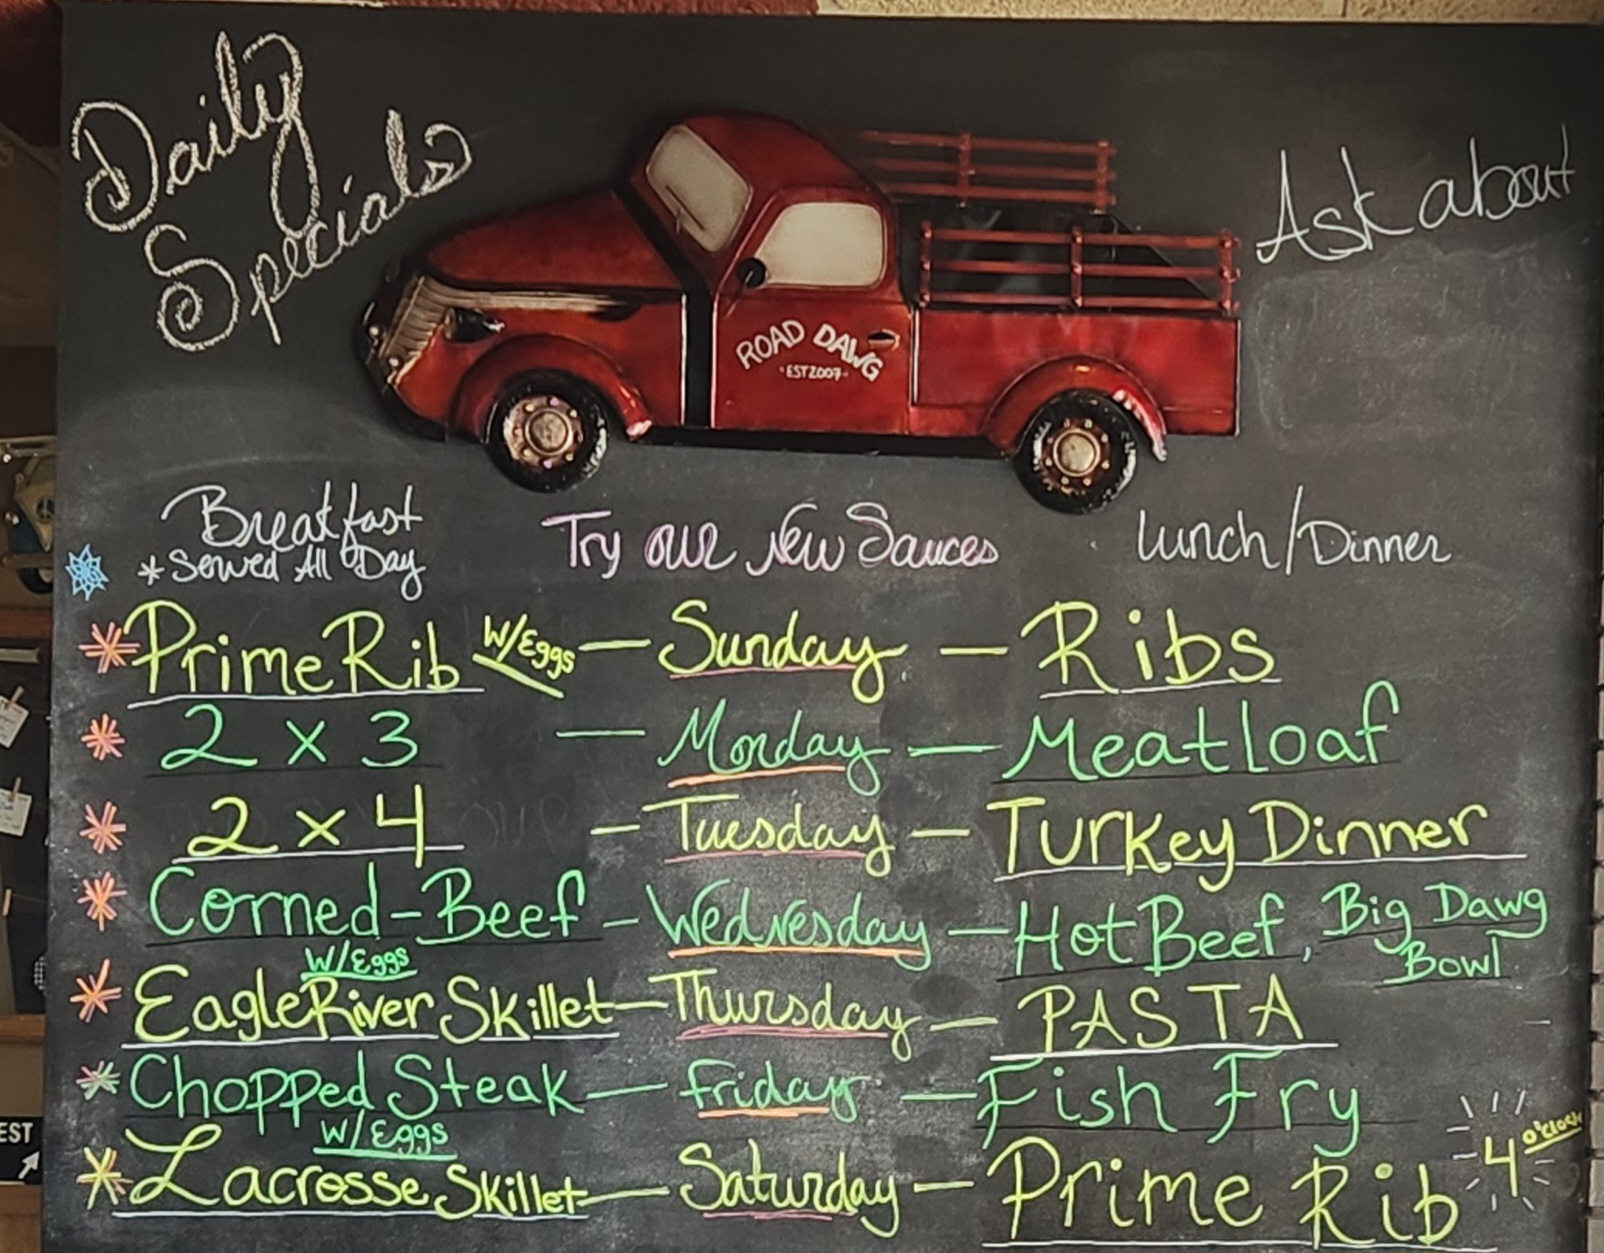 Daily
Specials
Ask about
ROAD DAWG
EST 2007
Breakfast
*Served All Day
Try our New Sauces
Lunch/Dinner
Prime Rib W/Eggs — Sunday — Ribs
2 x 3 — Monday — Meatloaf
2 x 4 — Tuesday — Turkey Dinner
Corned-Beef — Wednesday — Hot Beef, Big Dawg
W/Eggs
Bowl
Eagle River Skillet — Thursday — PASTA
Chopped Steak — Friday — Fish Fry
W/Eggs
Lacrosse Skillet — Saturday — Prime Rib 4 o'clock
EST